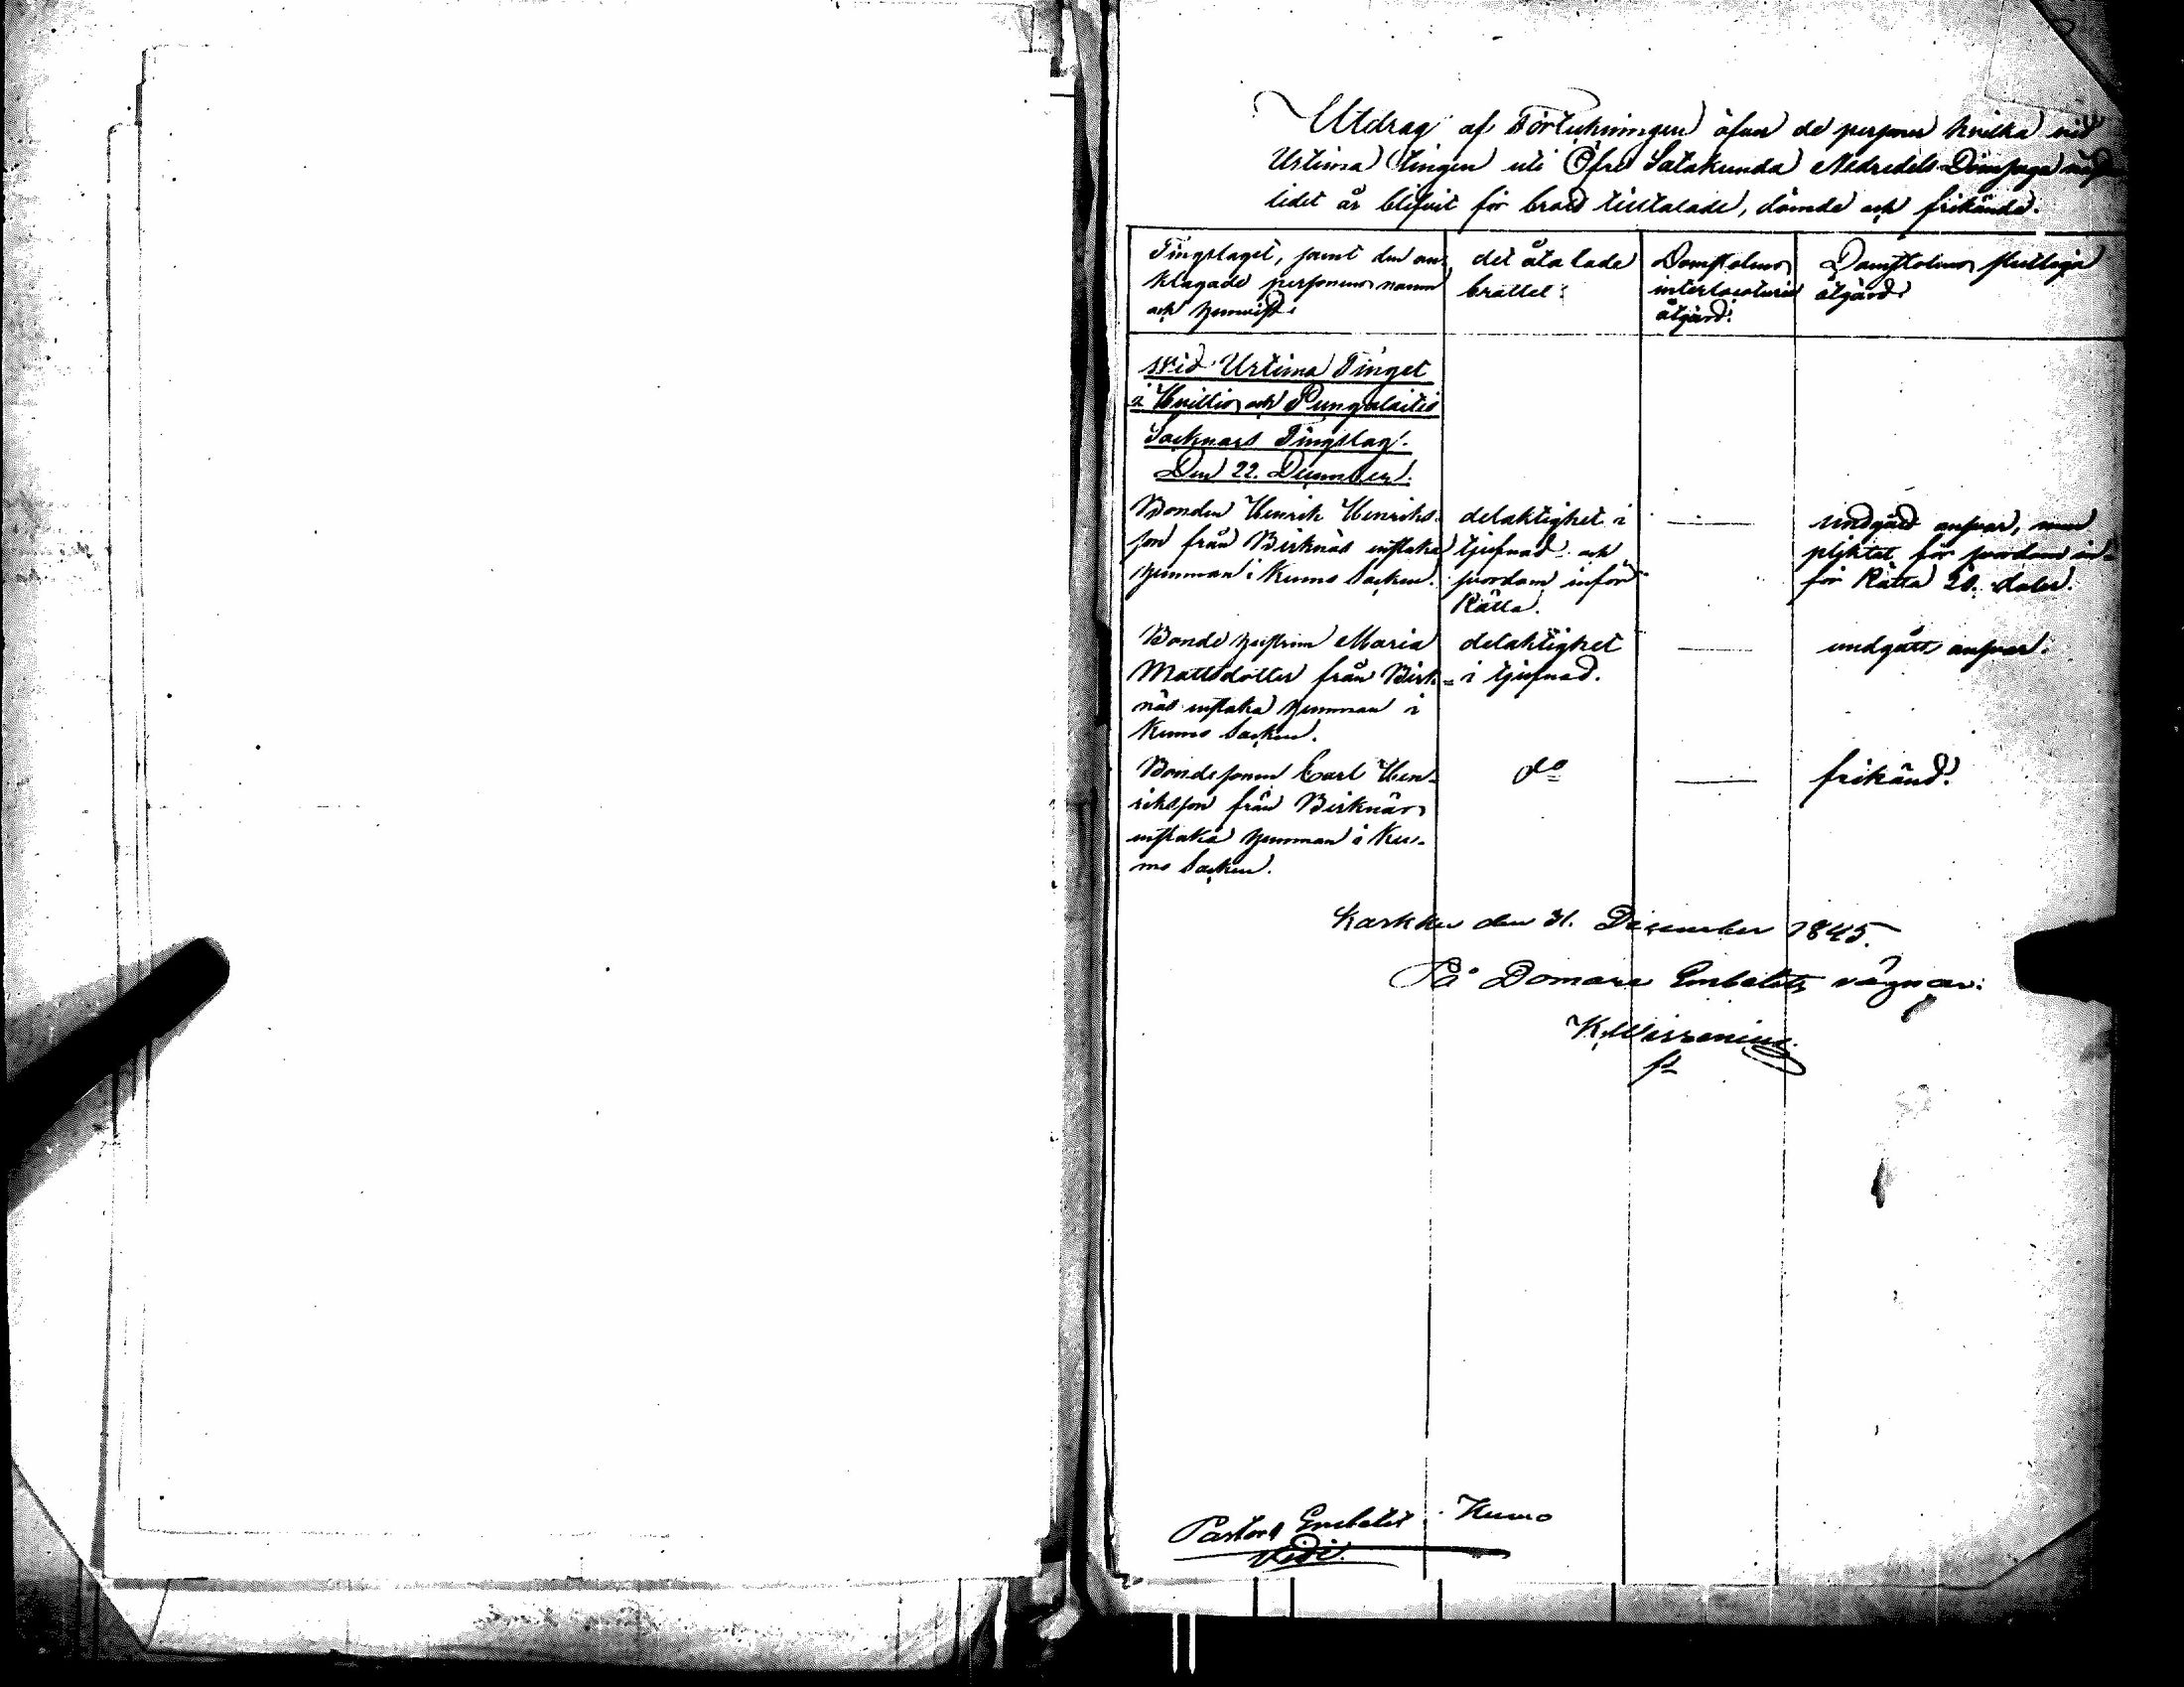 Utdrag af Förtekningen öfver de personer hvilka vid
Urtima Tingen uti Öfre Satakunda Nedredels Domsaga näst
lidet år blifvit för brott tilltalade, dömde och frikände.
Tingslaget, samt den an-
klagade personens namn
och hemvist:
det åtalade
brottet:
Domstolens
interlocutorie
åtgärd:
Domstolens slutliga
åtgärd:
Wid Urtima Tinget
i Hvittis och Pungalaitis
Socknars Tingslag.
Den 22. December.
Bonden Henrik Henriks-
son från Birknäs enstaka
hemman i Kumo Socken.
delaktighet i
tjufnad och
svordom inför
Rätta.
undgått ansvar, men
plicktat för svordom in-
för Rätta 20. daler.
Bonde hustrun Maria
Mattsdotter från Birk-
näs enstaka hemman i
Kumo Socken.
delaktighet
i tjufnad.
undgått ansvar.
Bondesonen Carl Hen-
riksson från Birknäs
enstaka hemman i Ku-
mo Socken.
do
frikänd.
Karkku den 31. December 1845.
På Domare Embetets vägnar:
Pastors Embetet i Kumo